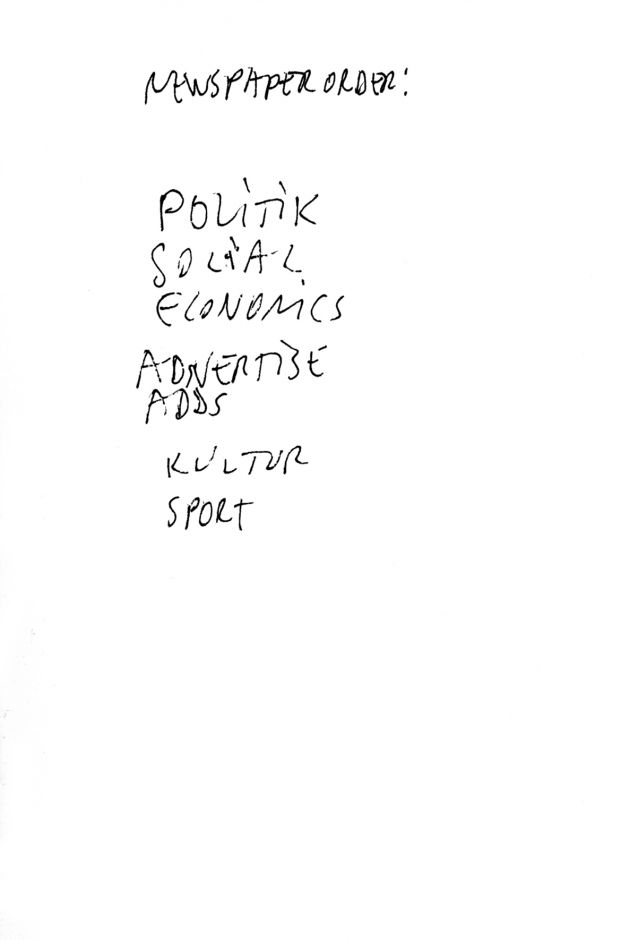 NEWSPAPER ORDER:
POLITIK
SOCIAL
ECONOMICS
ADVERTISE
ADDS
KULTUR
SPORT